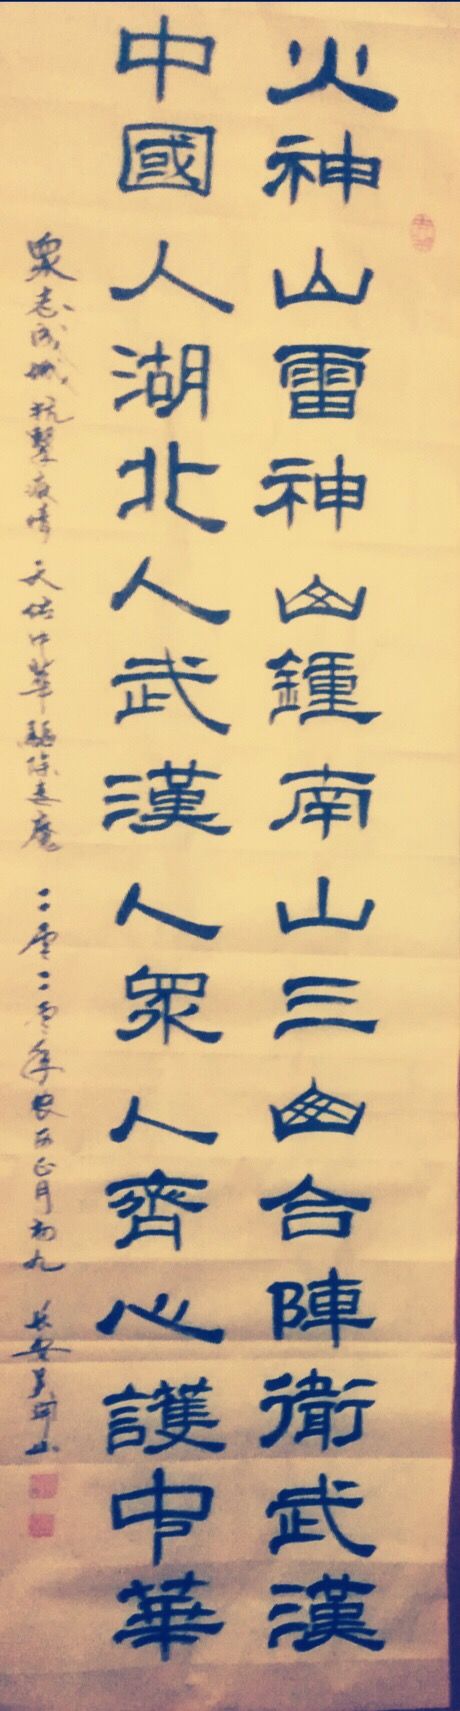 火神山雷神山鍾南山三山合陣衛武漢
中國人湖北人武漢人眾人齊心護中華
眾志成城抗擊疫情 天佑中華驅除毒魔 二零二零年農历正月初九 長安